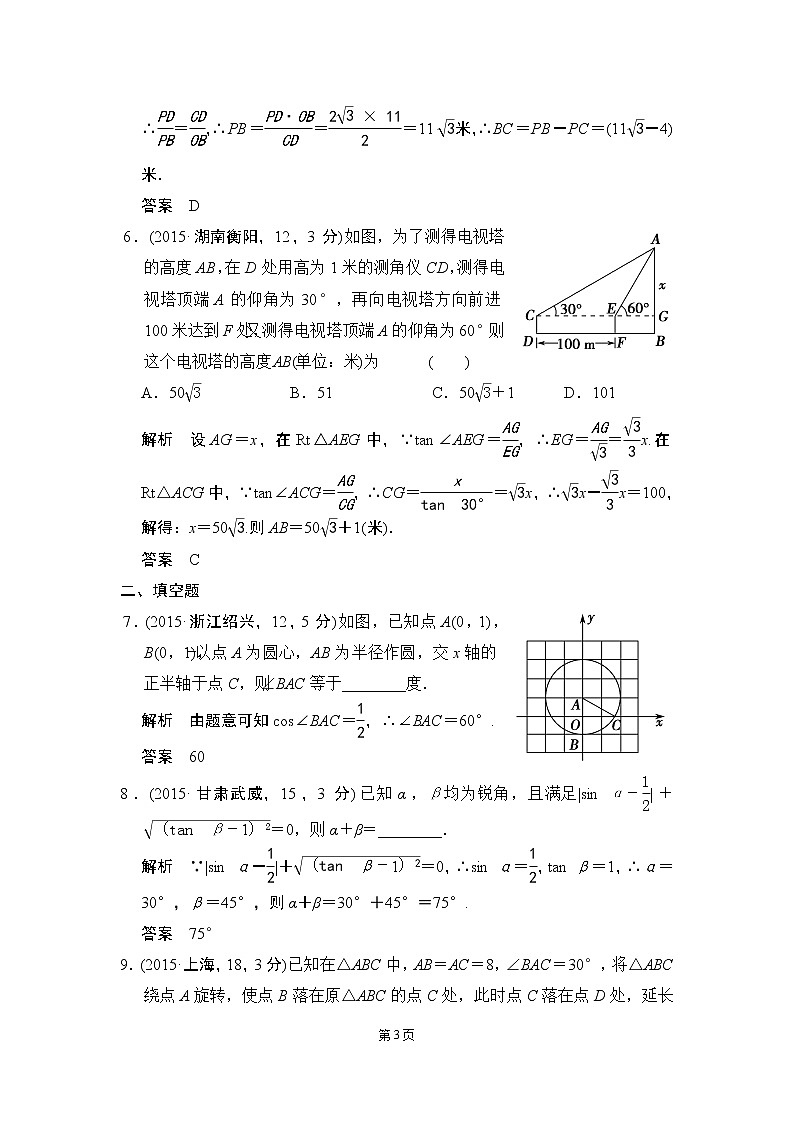 ∴PD/PB=CD/OB,∴PB=PD·OB/CD=2√3 × 11/2=11 √3米,∴BC=PB-PC=(11√3-4)
米.
答案 D
6.(2015·湖南衡阳,12,3 分)如图,为了测得电视塔
的高度AB,在D处用高为1米的测角仪CD,测得电
视塔顶端A的仰角为30°,再向电视塔方向前进
100米达到F处又测得电视塔顶端A的仰角为60°则
这个电视塔的高度AB(单位:米)为 ( )
A.50√3 B.51 C.50√3+1 D.101
A
x
C 30° E 60° G
D 100 m F B
解析 设AG=x,在Rt△AEG中,∵tan∠AEG=AG/EG,∴EG=AG/√3=√3/3x.在
Rt△ACG中,∵tan∠ACG=AG/CG,∴CG=x/tan 30°=√3x,∴√3x-√3/3x=100,
解得:x=50√3.则AB=50√3+1(米).
答案 C
二、填空题
7.(2015·浙江绍兴,12,5分)如图,已知点A(0,1),
B(0,1)以点A为圆心,AB为半径作圆,交x轴的
正半轴于点C,则∠BAC等于________度.
y
A
O C x
B
解析 由题意可知cos∠BAC=1/2,∴∠BAC=60°.
答案 60
8.(2015·甘肃武威,15,3 分)已知α,β均为锐角,且满足|sin α-1/2|+
√(tan β-1)²=0,则α+β=________.
解析 ∵|sin α-1/2|+√(tan β-1)²=0,∴sin α=1/2,tan β=1,∴α=
30°,β=45°,则α+β=30°+45°=75°.
答案 75°
9.(2015·上海,18,3分)已知在△ABC中,AB=AC=8,∠BAC=30°,将△ABC
绕点A旋转,使点B落在原△ABC的点C处,此时点C落在点D处,延长
第3页